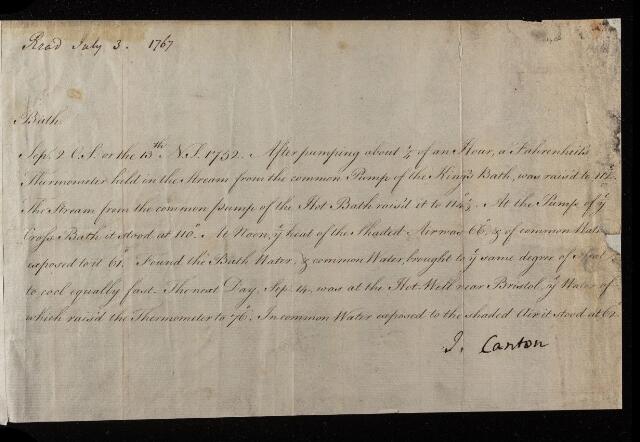 Read July 3. 1767
Bath.
Sep. 2 O.S. or the 13th N.S. 1752. After pumping about ¼ of an Hour, a Fahrenheit's
Thermometer held in the Stream from the common Pump of the King's Bath, was rais'd to 112.
The Stream from the common pump of the Hot Bath rais'd it to 114½. At the Pump of ye
Cross Bath it stood at 110°. At Noon, ye heat of the Shaded Air was 66°, & of common Water
exposed to it 61°. Found the Bath Water, & common Water, brought to ye same degree of Heat
to cool equally fast. The next Day, Sep. 14. was at the Hot-Well near Bristol, ye Water of
which rais'd the Thermometer to 76°. In common Water exposed to the shaded Air it stood at
J. Canton